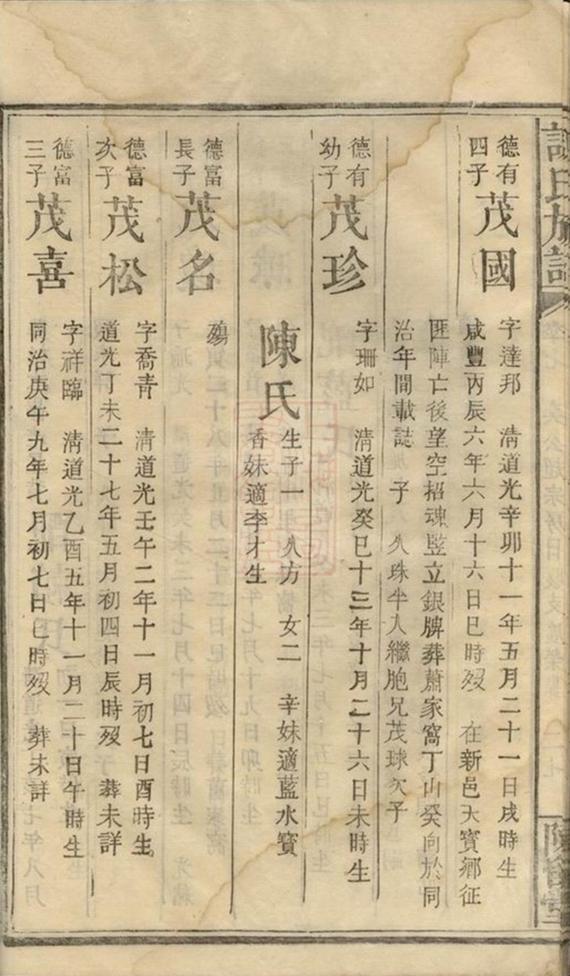 德有
四子
茂國
字達邦　清道光辛卯十一年五月二十一日戌時生
咸豐丙辰六年六月十六日巳時歿　在新邑大寶鄉征
匪陣亡後望空招魂豎立銀牌葬蕭家窩丁山癸向於同
治年間載誌　子　久珠半人繼胞兄茂球次子
德有
幼子
茂珍
字珊如　清道光癸巳十三年十月二十六日未時生
陳氏
生子一　久方　女二　辛妹適藍水寶
香妹適李才生
德富
長子
茂名
殤
德富
次子
茂松
字喬青　清道光壬午二年十一月初七日酉時生
道光丁未二十七年五月初四日辰時歿　葬未詳
德富
三子
茂喜
字祥臨　清道光乙酉五年十一月二十日午時生
同治庚午九年七月初七日巳時歿　葬未詳